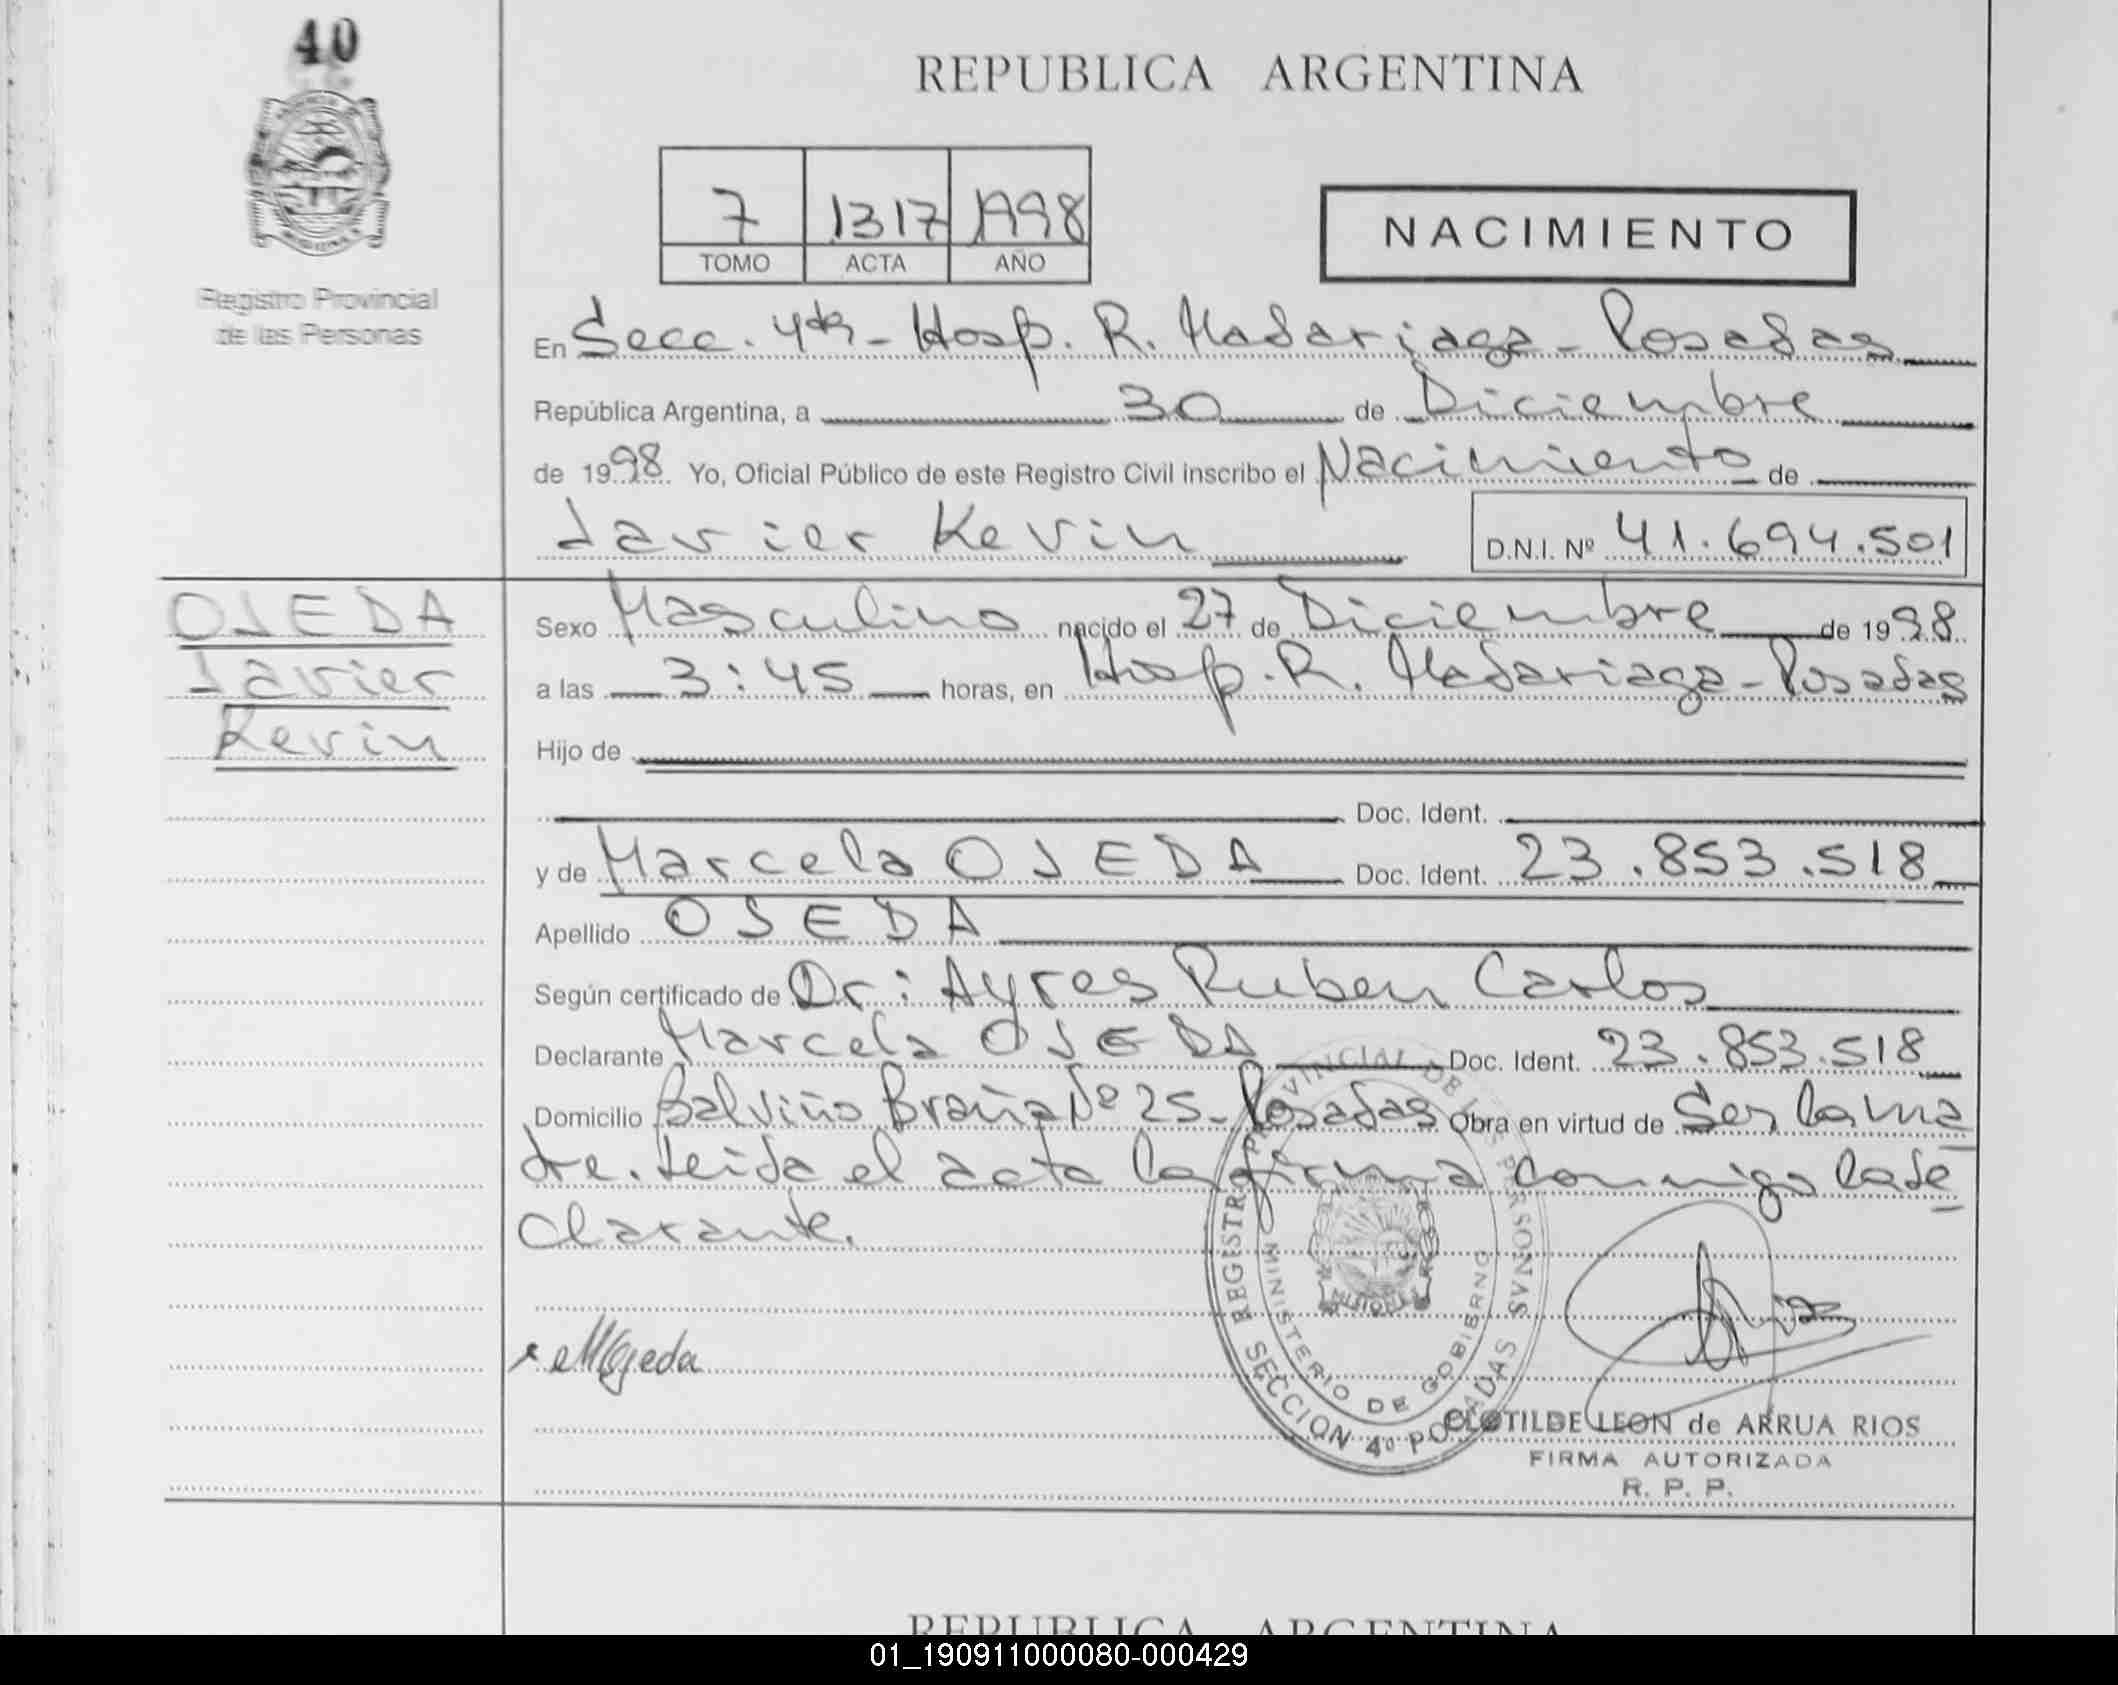 40
REPUBLICA ARGENTINA
7 1317 1998
TOMO ACTA AÑO
NACIMIENTO
Registro Provincial
de las Personas
En Secc. 4ta - Hosp. R. Madariaga - Posadas
República Argentina, a 30 de Diciembre
de 1998 Yo, Oficial Público de este Registro Civil inscribo el Nacimiento de
Javier Kevin D.N.I. Nº 41.694.501
OJEDA
Javier
Kevin
Sexo Masculino nacido el 27 de Diciembre de 1998
a las 3:45 horas, en Hosp. R. Madariaga - Posadas
Hijo de
Doc. Ident.
y de Marcela OJEDA Doc. Ident. 23.853.518
Apellido OJEDA
Según certificado de Dr: Ayres Ruben Carlos
Declarante Marcela OJEDA Doc. Ident. 23.853.518
Domicilio Balviño Braña Nº 25 - Posadas Obra en virtud de Ser la ma
dre. Leida el acta la firma conmigo la de
clarante.
REGISTRO PROVINCIAL DE LAS PERSONAS
MINISTERIO DE GOBIERNO
MISIONES
SECCION 4º POSADAS
MOjeda
CLOTILDE LEON de ARRUA RIOS
FIRMA AUTORIZADA
R. P. P.
REPUBLICA ARGENTINA
01_190911000080-000429